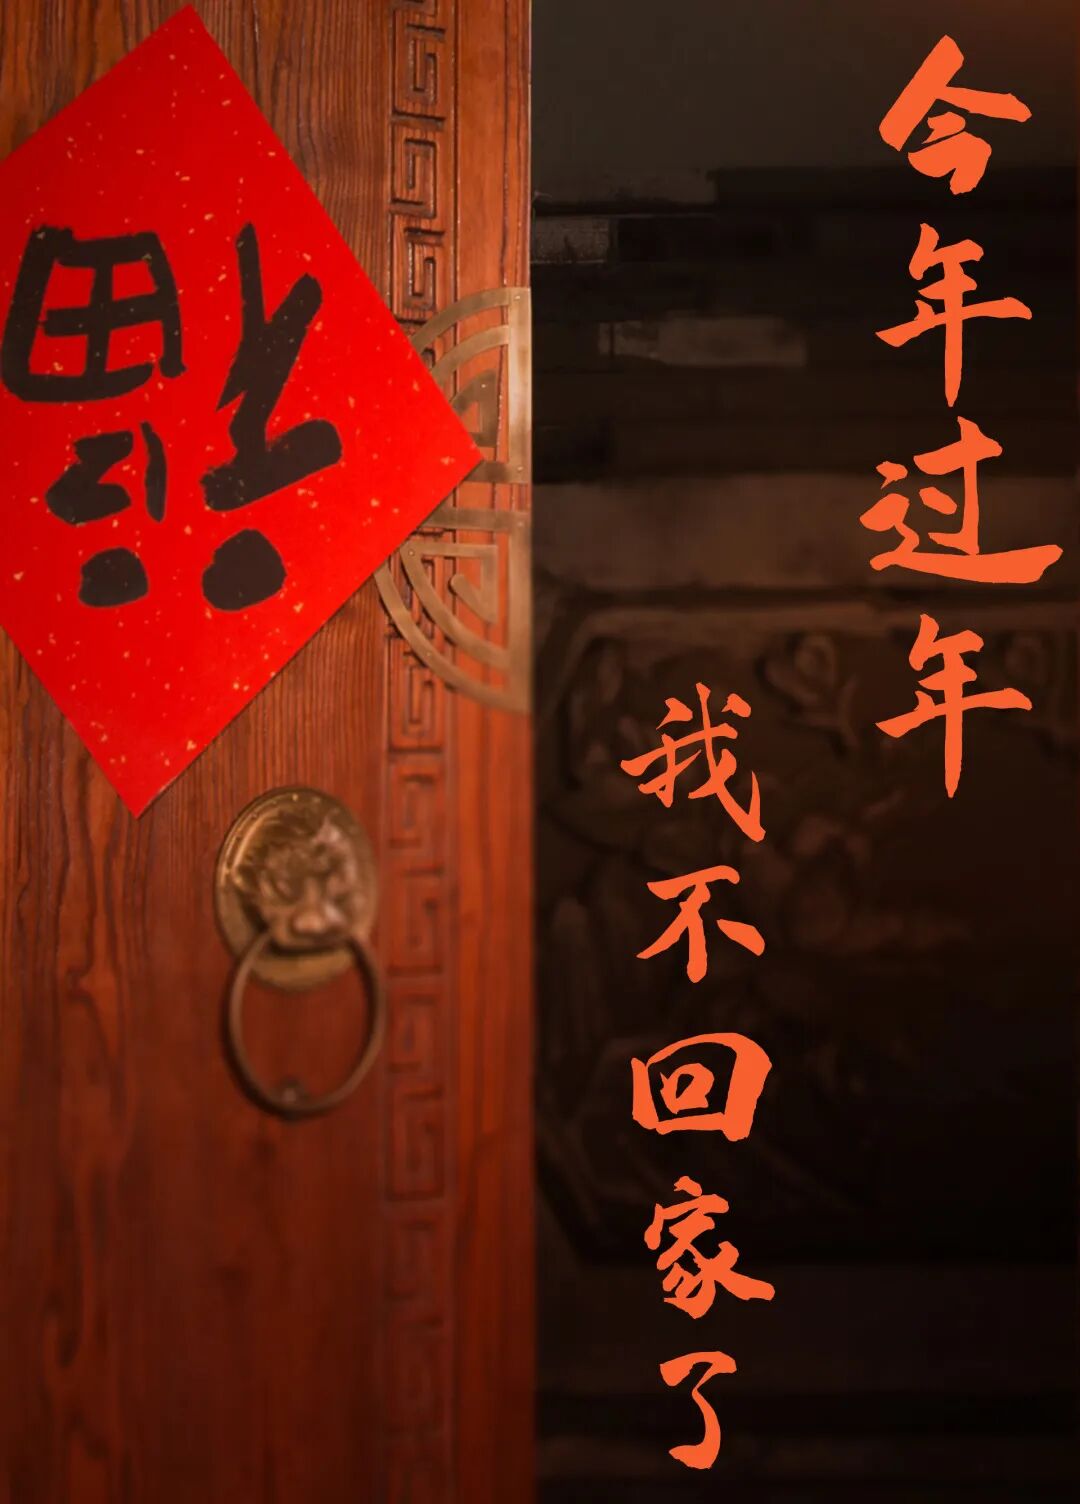 今年过年
我不回家了
福